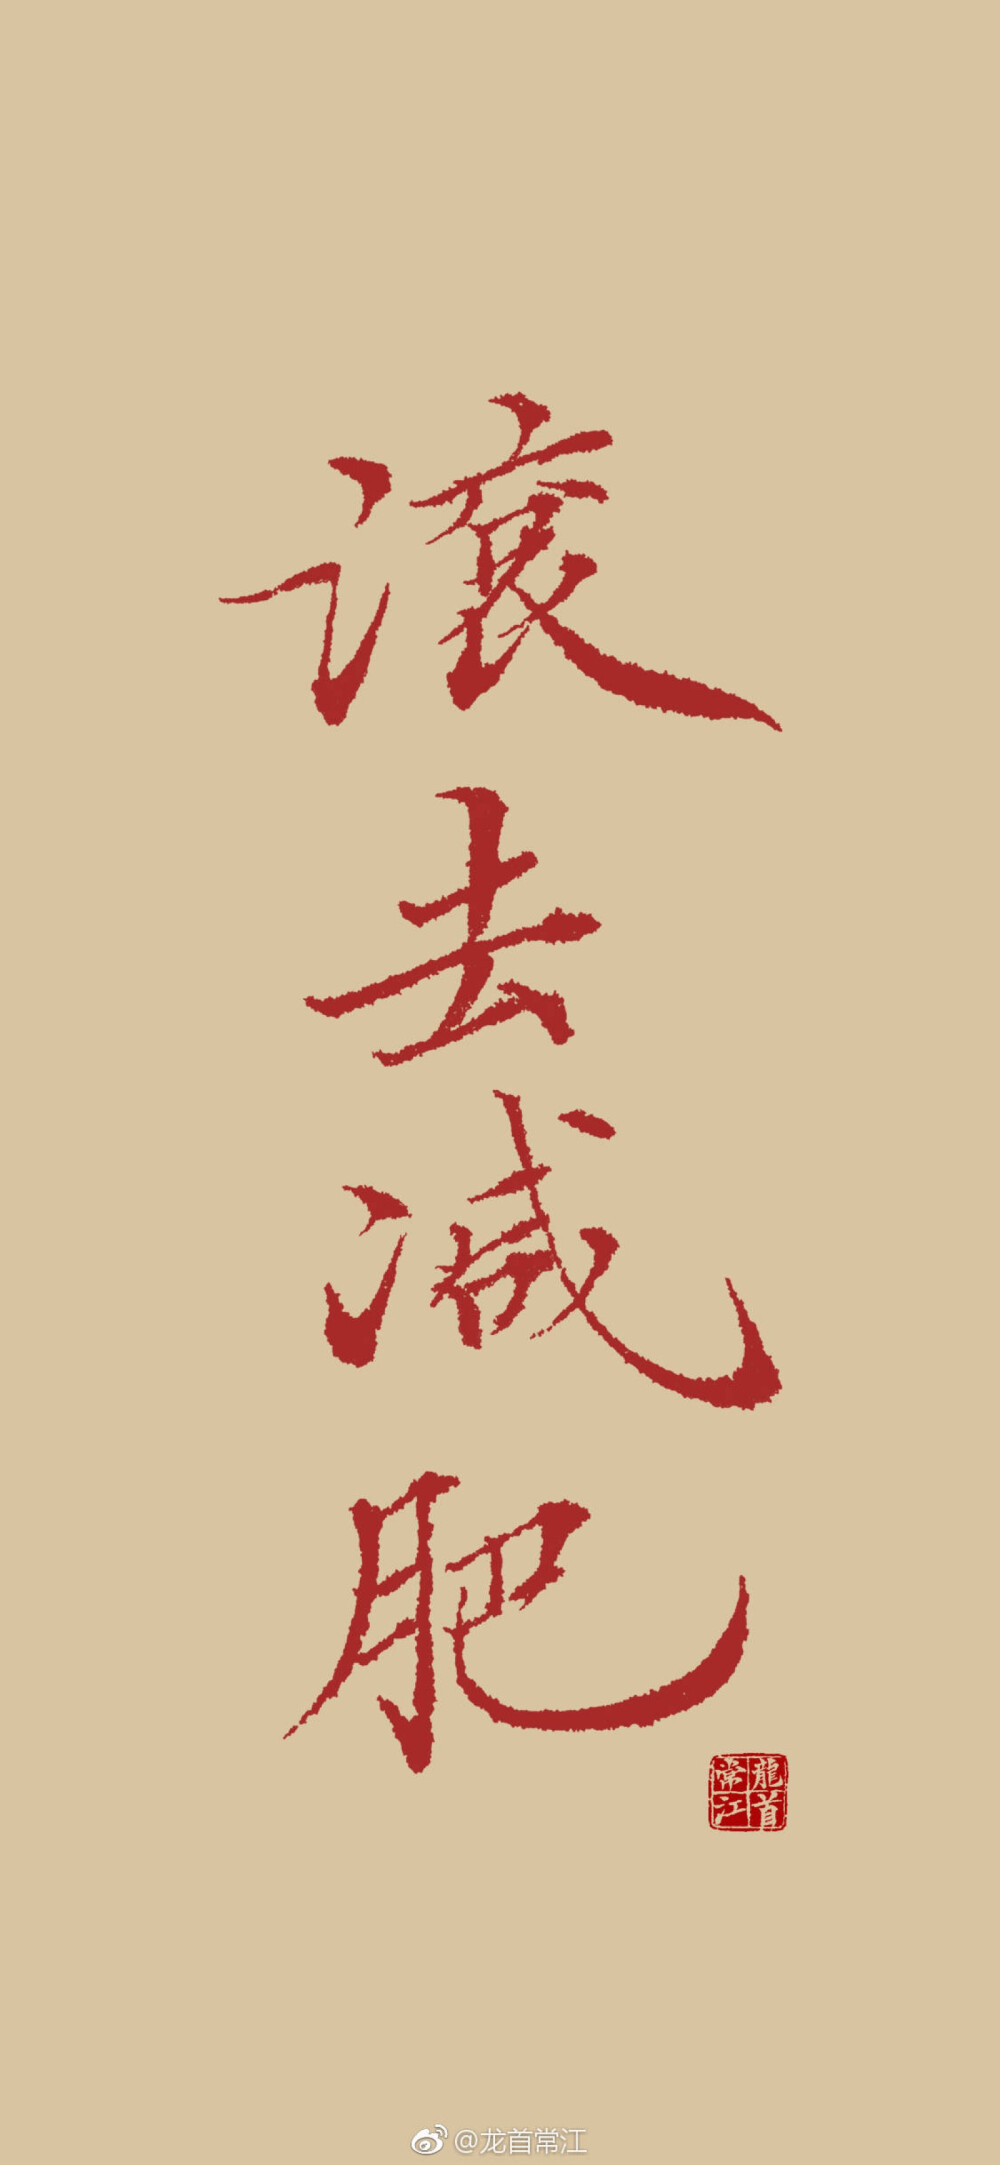 滚去减肥
龍首
常江
@龙首常江